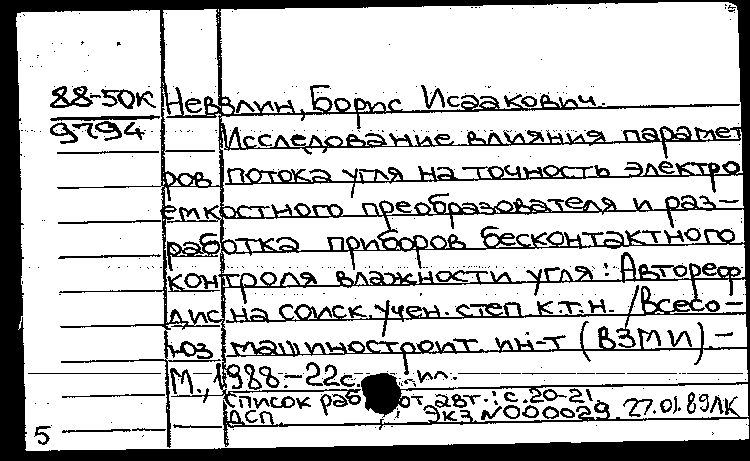 88-50К Невзлин, Борис Исаакович.
9794
Исследование влияния парамет
ров потока угля на точность электро
емкостного преобразователя и раз-
работка приборов бесконтактного
контроля влажности угля: Автореф
дис на соиск. учен. степ к.т.н. /Всесо-
юз машиностроит. ин-т (ВЗМИ).-
М., 1988.-22с. ил.
Список раб от авт.: с.20-21
ДСП. Экз.№000029. 27.01.89ЛК
5